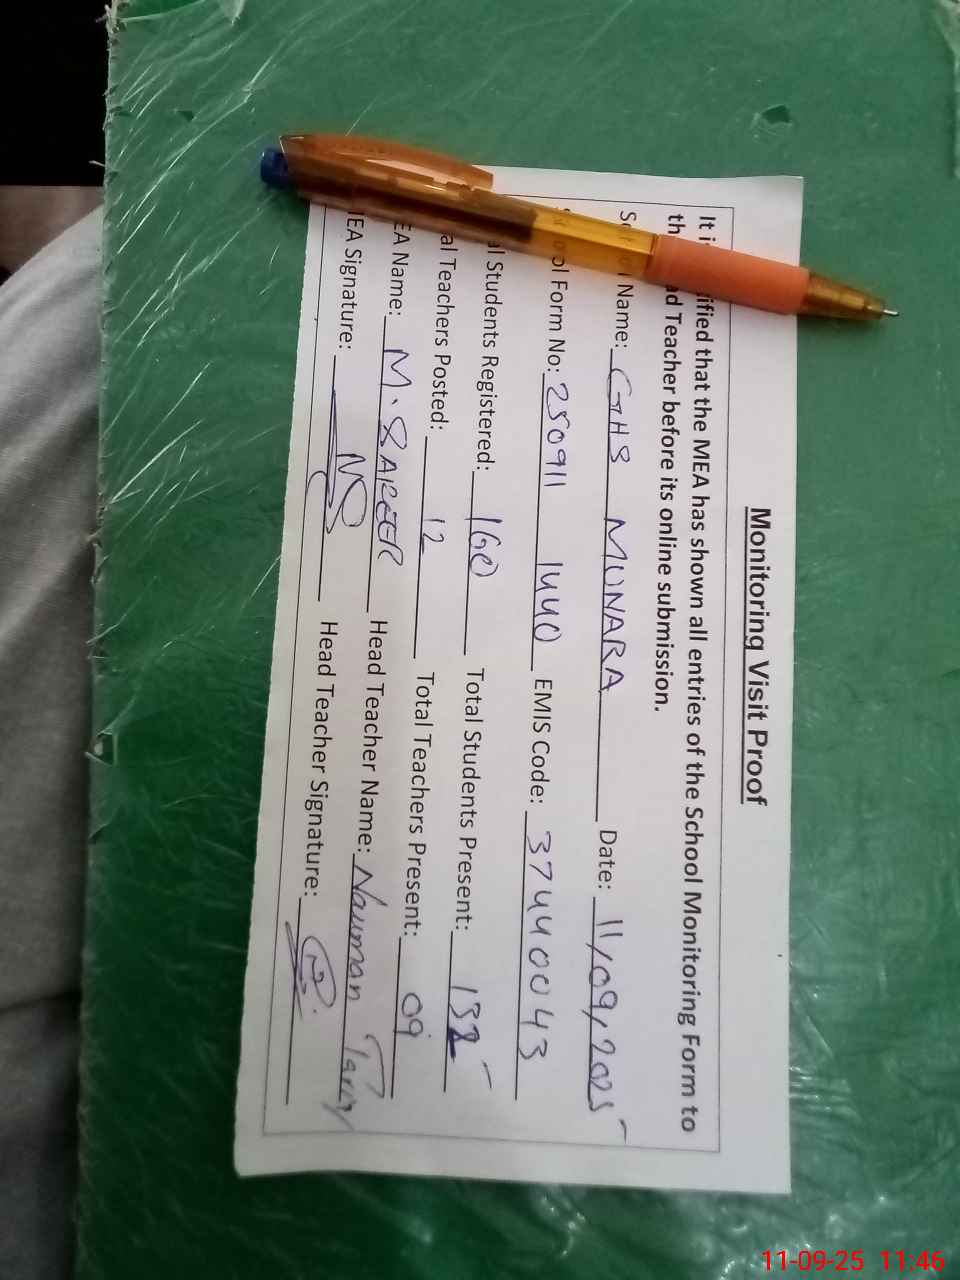 Monitoring Visit Proof
It is certified that the MEA has shown all entries of the School Monitoring Form to
the Head Teacher before its online submission.
School Name: GHS MUNARA Date: 11/09/2025
School Form No: 250911 1440 EMIS Code: 37440043
al Students Registered: 160 Total Students Present: 132
al Teachers Posted: 12 Total Teachers Present: 09
EA Name: M. SAREER Head Teacher Name: Nauman Tariq
IEA Signature: Head Teacher Signature:
11-09-25 11:46